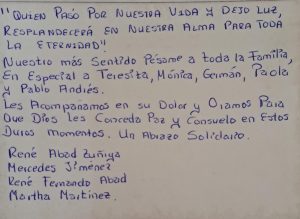 "QUIEN PASÓ POR NUESTRA VIDA Y DEJO LUZ,
RESPLANDECERÁ EN NUESTRA ALMA PARA TODA
LA ETERNIDAD".
Nuestro más Sentido Pésame a toda la Familia,
En Especial a Teresita, Mónica, Germán, Paola
y Pablo Andrés.
Les Acompañamos en su Dolor y Oramos Para
Que Dios les Conceda Paz y Consuelo en Estos
Duros momentos. Un Abrazo Solidario.
René Abad Zuñiga
Mercedes Jiménez
René Fernando Abad
Martha Martínez.